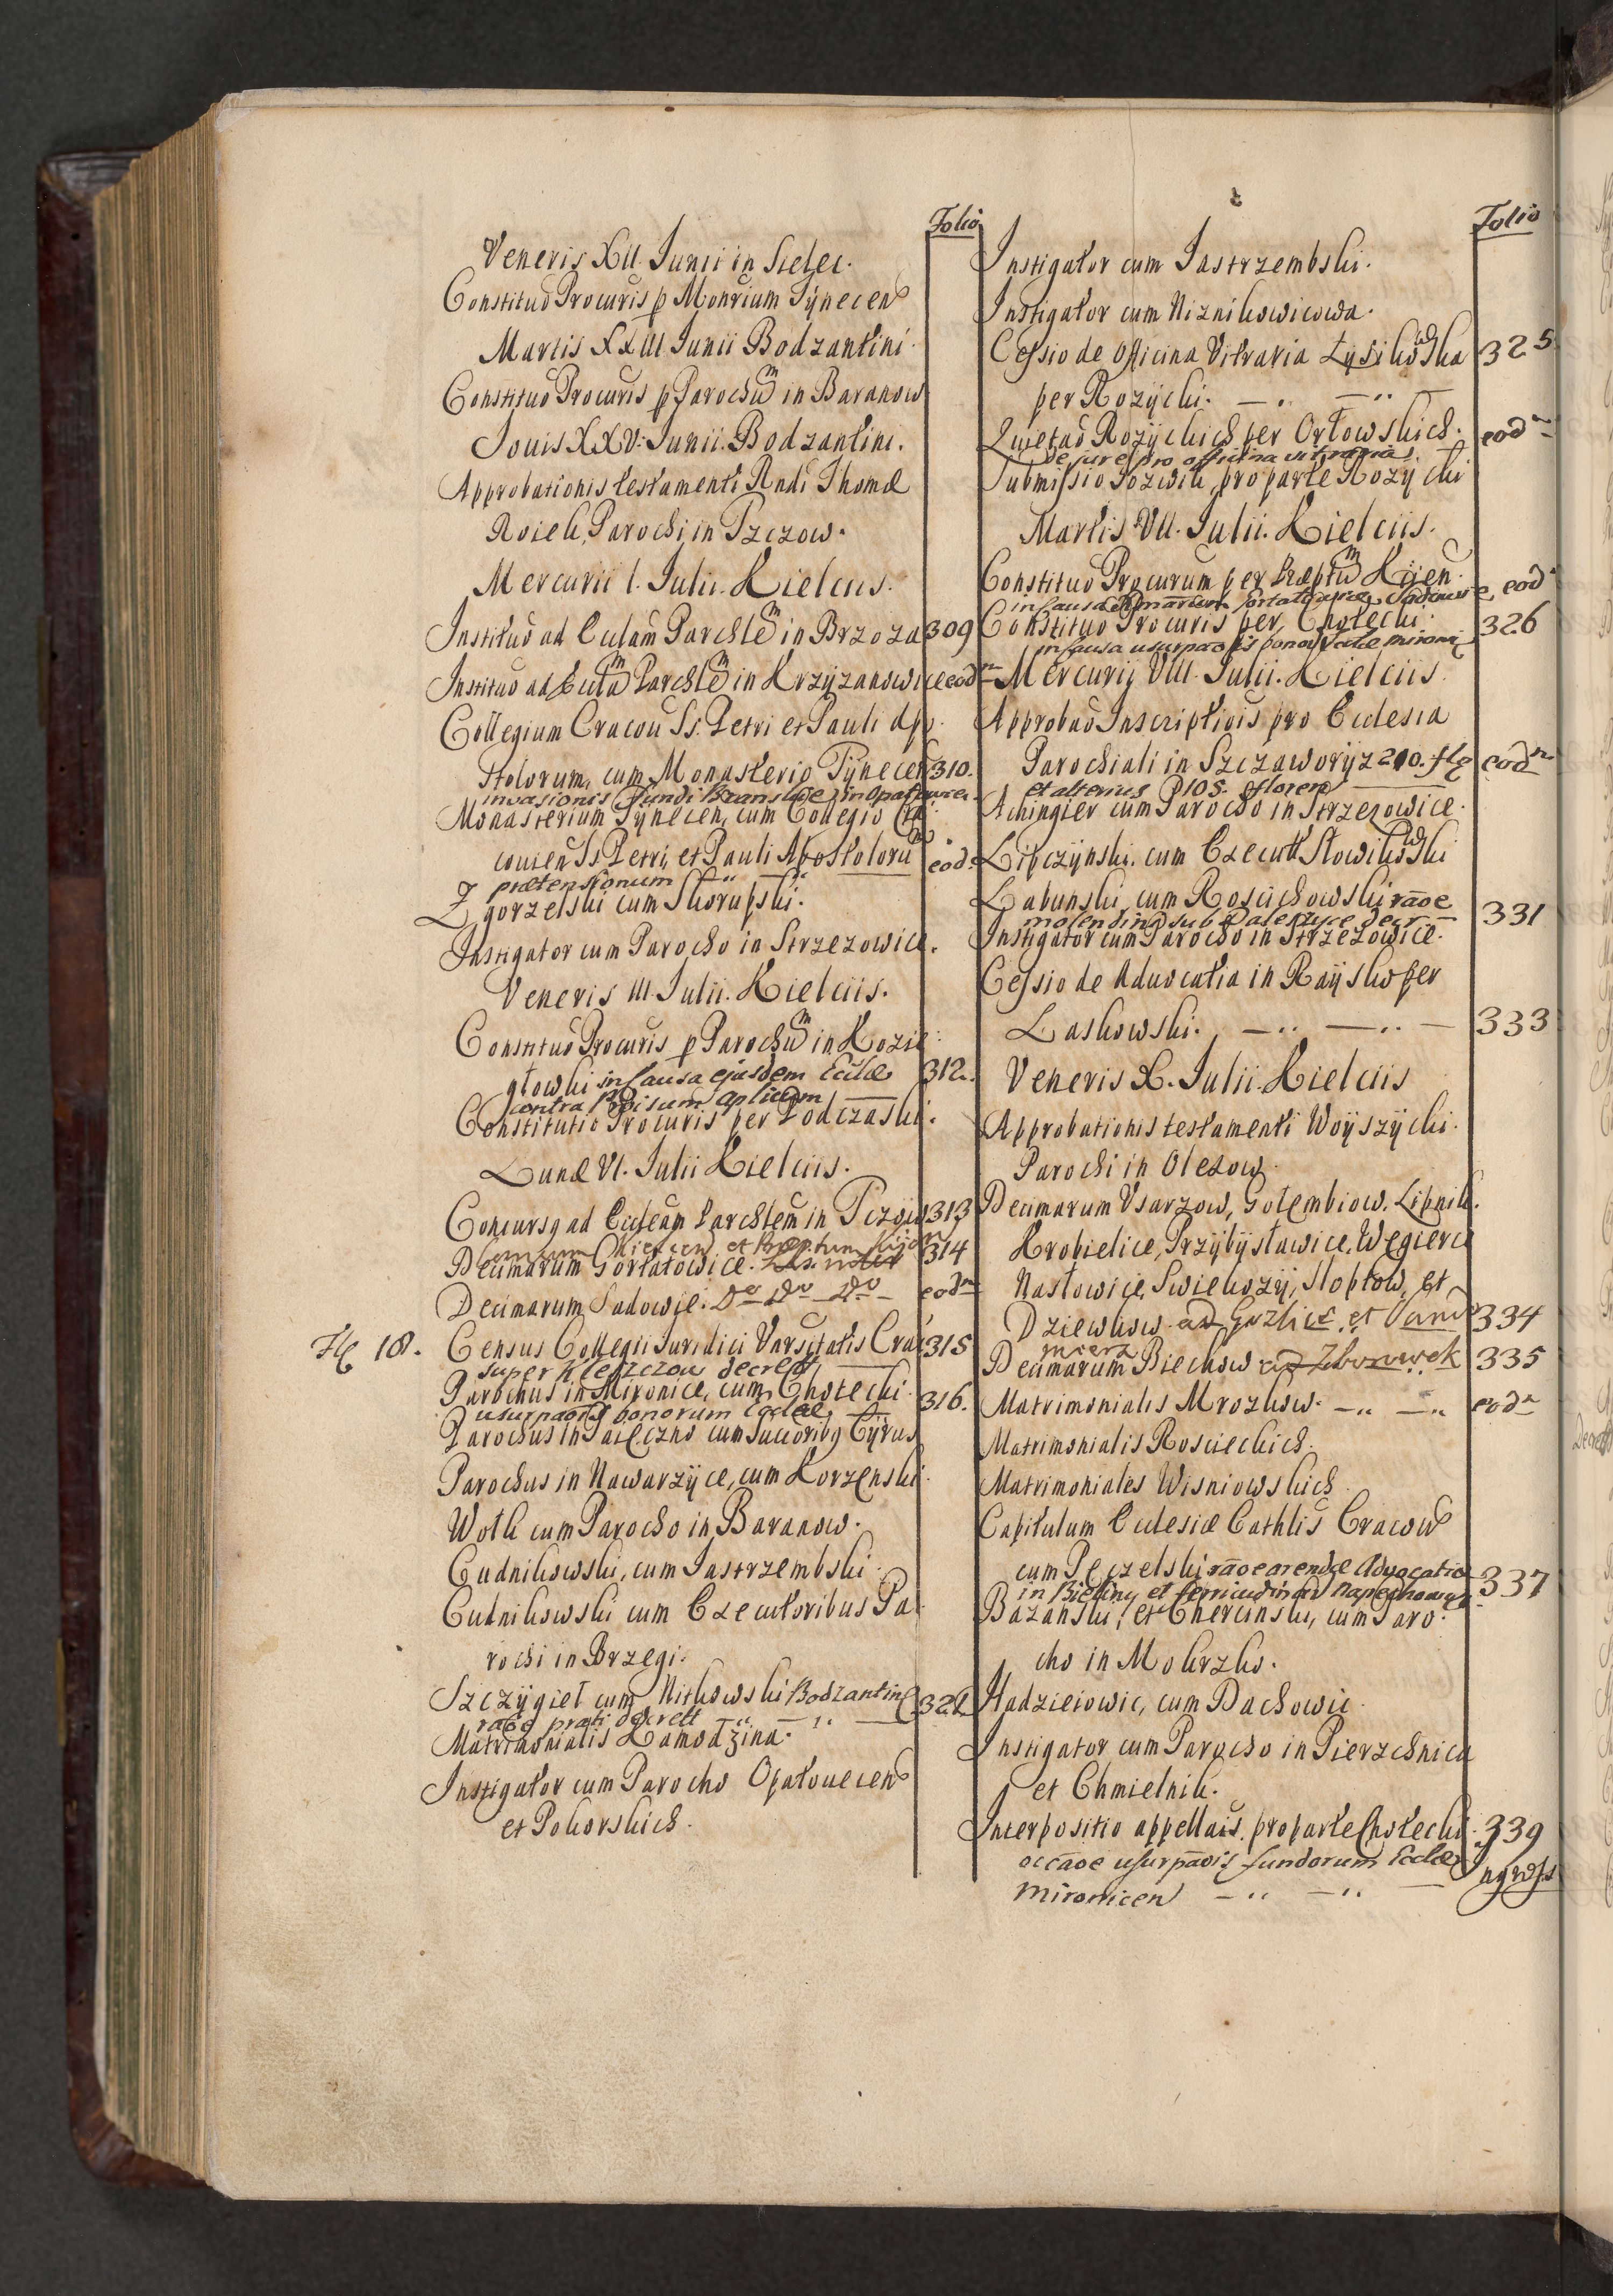 Folio
Veneris XII. Junii in Sielec.
Constituo Procuris p Monrium Tÿnecen
Martis XXIII Junii Bodzantini.
Constituo Procuris p Parochum in Baranow
Jouis XXV. Junii. Bodzantini.
Approbationis testamenti Rndi Thomæ
Rosiek, Parochi in Pzczow.
Mercurii I. Julii. Kielciis.
Instituo ad Ecclam Parchlem in Brzoza 309
Instituo ad Ecclam Parchlem in Krzÿzanowice eodm
Collegium Cracou Ss. Petri et Pauli Apo
stolorum, cum Monasterio Tÿnecen 310.
invasionis fundi in Opatowiec
Monasterium Tÿnecen, cum Collegio Cra
couien Ss Petri, et Pauli Apostolorum eod.
prætensionum
Zgorzelski cum Skorupski.
Instigator cum Parocho in Strzezowice.
Veneris III. Julii. Kielciis.
Constituo Procuris p Parochum in Kozie
głowki in causa ejusdem Ecclæ 312.
contra
Constitutio Procuris per Podczaski.
Lunæ VI. Julii Kielciis.
Concursq ad Eccleam Parchlem in Pczow 313
et Præptum Kijen
Decimarum Gortatowice. 314
Decimarum Sadowie. Do Do Do eodm
Fl 18. Census Collegii Juridici Varsitatis Crac 315
super Kleszczow decrett
Parochus in Mironice, cum Chotecki. 316.
usurpaois bonorum Ecclæ
Parochus in cum Sutoribq Cÿrus
Parochus in Nawarzÿce, cum Korzenski.
Wolk cum Parocho in Baranow.
Cudnikowski, cum Jastrzembski.
Cudnikowski cum Executoribus Pa
rochi in Brzegi.
Szczÿgieł cum Nitkowski Bodzantin 322
raoe prati decrett
Matrimonialis Lamodzina.
Instigator cum Parocho Opatouecen
et Pokorskich.
Folio
Instigator cum Jastrzembski.
Instigator cum Niznikowicowa.
Cessio de Officina Vitraria Łysikowska 325
per Rozÿcki.
Quietao Rozÿckich per Orłowskich. eodm
de jure pro officina vitraria
Submissio Jozwik, pro parte Rozÿcki
Martis VII. Julii. Kielciis.
Constituo Procurum per Præptum Kijen.
in causa Gortatowice Sadowie, eod
Constituo Procuris per Chotecki. 326
in causa usurpaois bonor Ecclæ Miron
Mercurij VIII. Julii. Kielciis.
Approbao Inscriptiois pro Ecclesia
Parochiali in Szczaworÿz 210. fl eodm
et alterius P 105. floren
Achingier cum Parocho in Strzezowice.
Lipczÿnski. cum Executt Słowikowski
Łabunski, cum Roscichowski raoe
molendini sub Daleszyce decr 331
Instigator cum Parocho in Strzezowice.
Cessio de Aduocatia in Raÿsko per
Laskowski. 333
Veneris X. Julii. Kielciis
Approbationis testamenti Woÿszÿcki.
Parochi in Olezow.
Decimarum Vsarzow, Gołembiow. Lipnik.
Krobielice, Przÿbÿsławice, Węgierce
Nasłowice, Swiekozÿ, Słoptow, et
Dziewkow. ad Gozlice, et Sando 334
mierz
Decimarum Biechow ad Zborowek 335
Matrimonialis Mrozkow. eodm
Matrimonialis Rosciechich.
Matrimoniales Wisniowskich
Capitulum Ecclesiæ Cathlis Cracow
cum Pęczelski raoe arendæ Advocatiæ 337
in Bieliny et
Bazanski, et Chercinski, cum Paro.
cho in Mokrzko.
Hadzieiowic, cum Dachowic.
Instigator cum Parocho in Pierzchnica
et Chmielnik.
Interpositio appellaois. pro parte Chotecki. 339
occaoe usurpaois fundorum Ecclæ
Mironicen